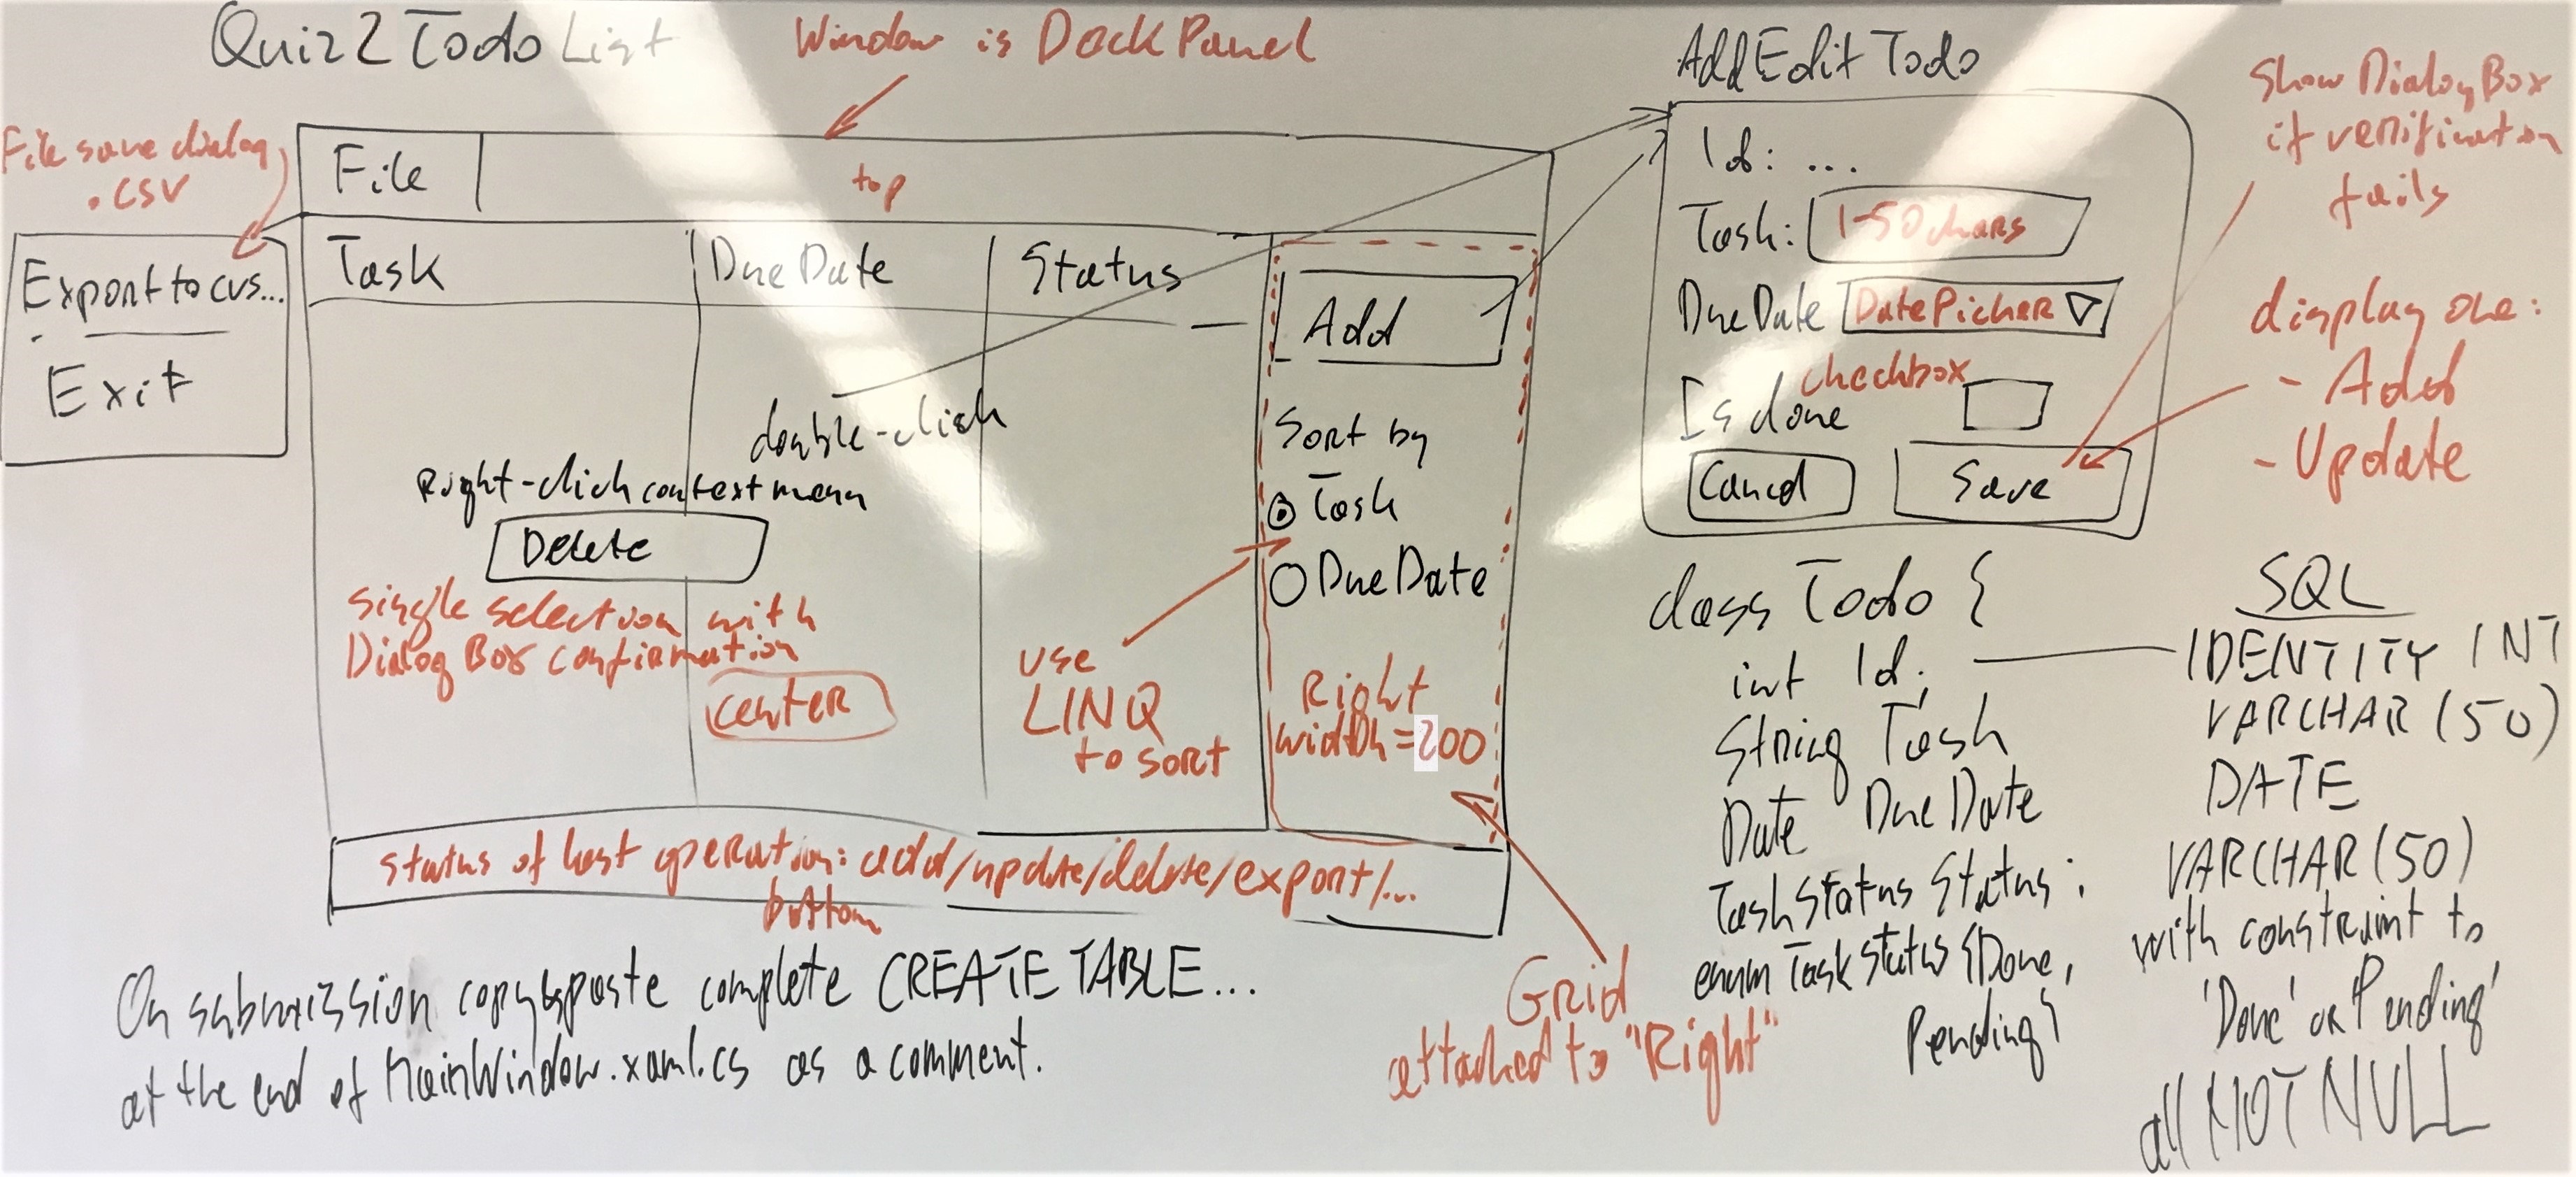 Quiz 2 Todo List
Window is DockPanel
File save dialog
.CSV
File
top
Export to cvs...
Exit
Task
DueDate
Status
Add
double-click
Right-click context menu
Delete
single selection with
Dialog Box confirmation
center
Sort by
Task
DueDate
use
LINQ
to sort
Right
width=200
status of last operation: add/update/delete/export/...
bottom
Grid
attached to "Right"
On submission copy&paste complete CREATE TABLE...
at the end of MainWindow.xaml.cs as a comment.
AddEdit Todo
Id: ...
Task: 1-50 chars
DueDate DatePicker
checkbox
Is done
Cancel
Save
Show DialogBox
if verification
fails
display one:
- Add
- Update
class Todo {
int Id;
String Task
Date DueDate
TaskStatus Status;
enum TaskStatus {Done,
Pending}
SQL
IDENTITY INT
VARCHAR (50)
DATE
VARCHAR (50)
with constraint to
'Done' or 'Pending'
all NOT NULL